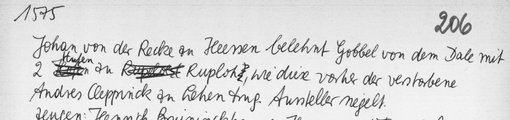 1575
206
Johan von der Recke zu Heessen belehnt Gobbel von dem Dale mit
2 Hufen zu Ruploh, wie diese vorher der verstorbene
Andres Cleppinck zu Lehen trug. Aussteller siegelt.
Zeugen: